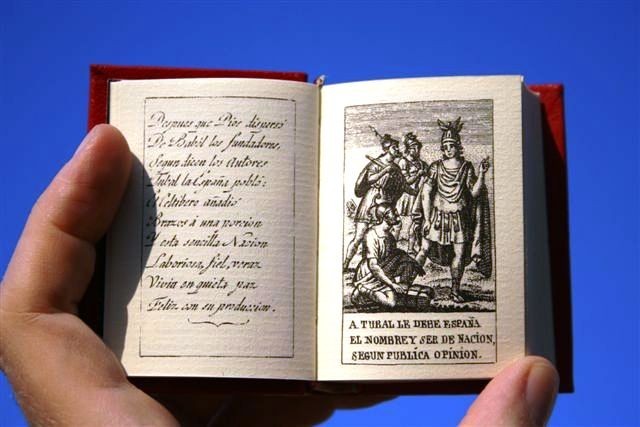 Despues que Dios dispersó
De Babél los fundadores,
Segun dicen los Autores
Tubal la España pobló:
El Celtibero añadió
Brazos á una porcion
Y esta sencilla Nacion
Laboriosa, fiel, veraz
Vivia en quieta paz
Feliz con su produccion.
A TUBAL LE DEBE ESPAÑA
EL NOMBRE Y SER DE NACION,
SEGUN PUBLICA OPINION.